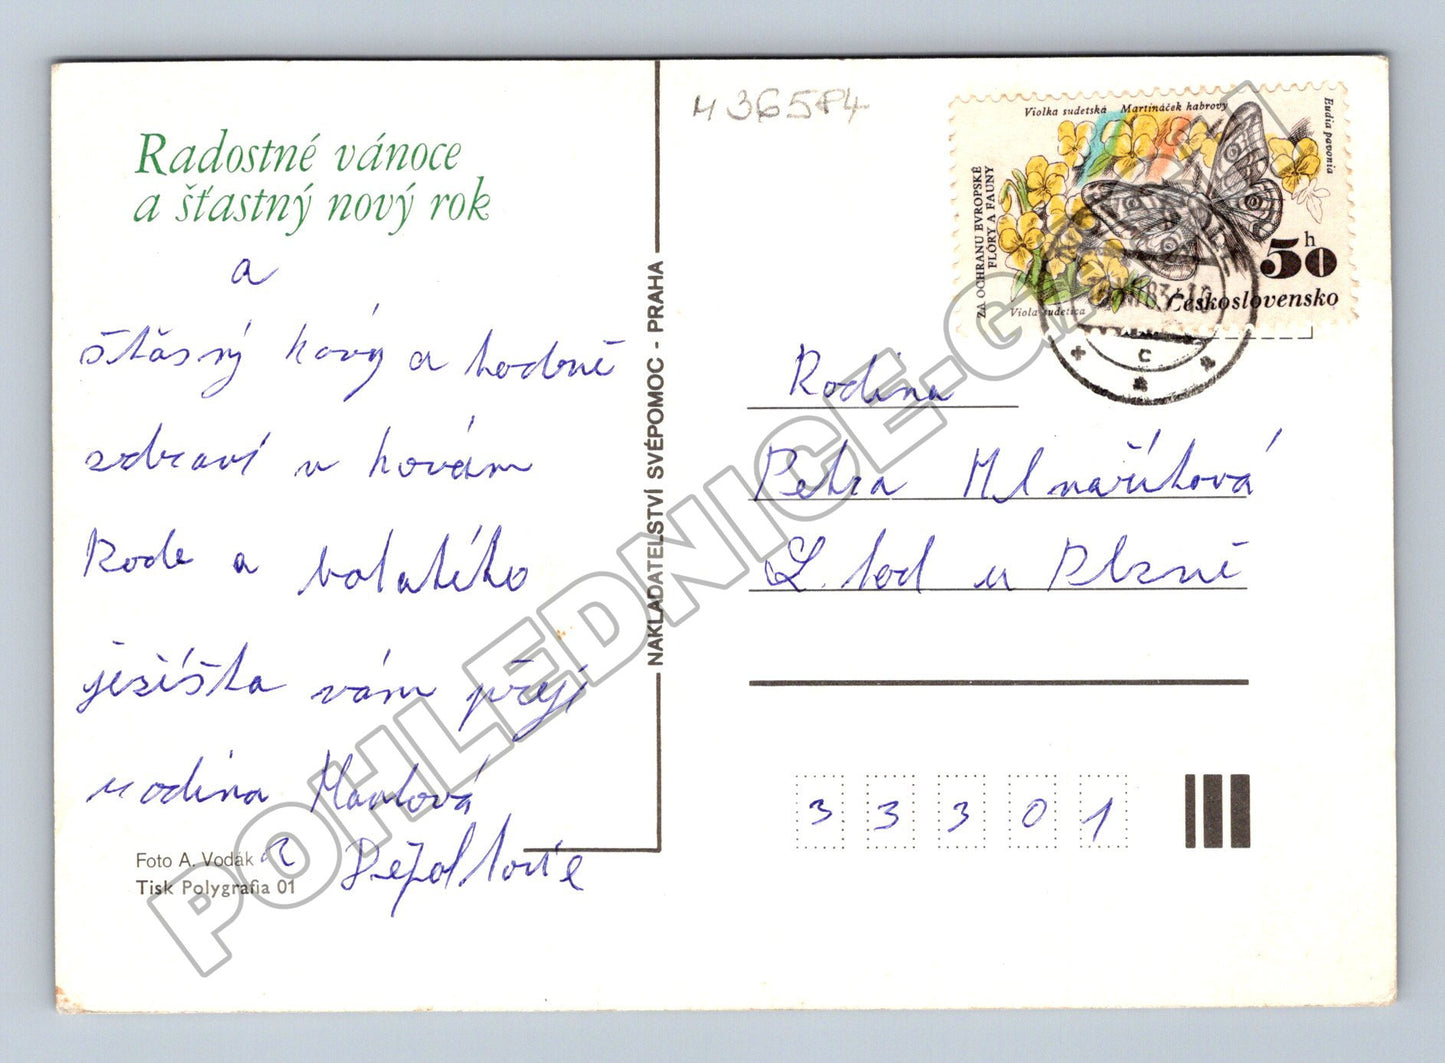 Radostné vánoce
a šťastný nový rok
a
šťásný nový a hodně
zdraví v novém
Roce a bohatého
ježíška vám přejí
rodina
z
Foto A. Vodák
Tisk Polygrafia 01
NAKLADATELSTVÍ SVÉPOMOC - PRAHA
M 36584
Violka sudetská Martináček habrový
Eudia pavonia
ZA OCHRANU EVROPSKÉ
FLÓRY A FAUNY
Viola sudetica
50 h
Československo
C
Rodina
Petra Mlnaříková
L. hod u Plzně
3 3 3 0 1
POHLEDNICE.G